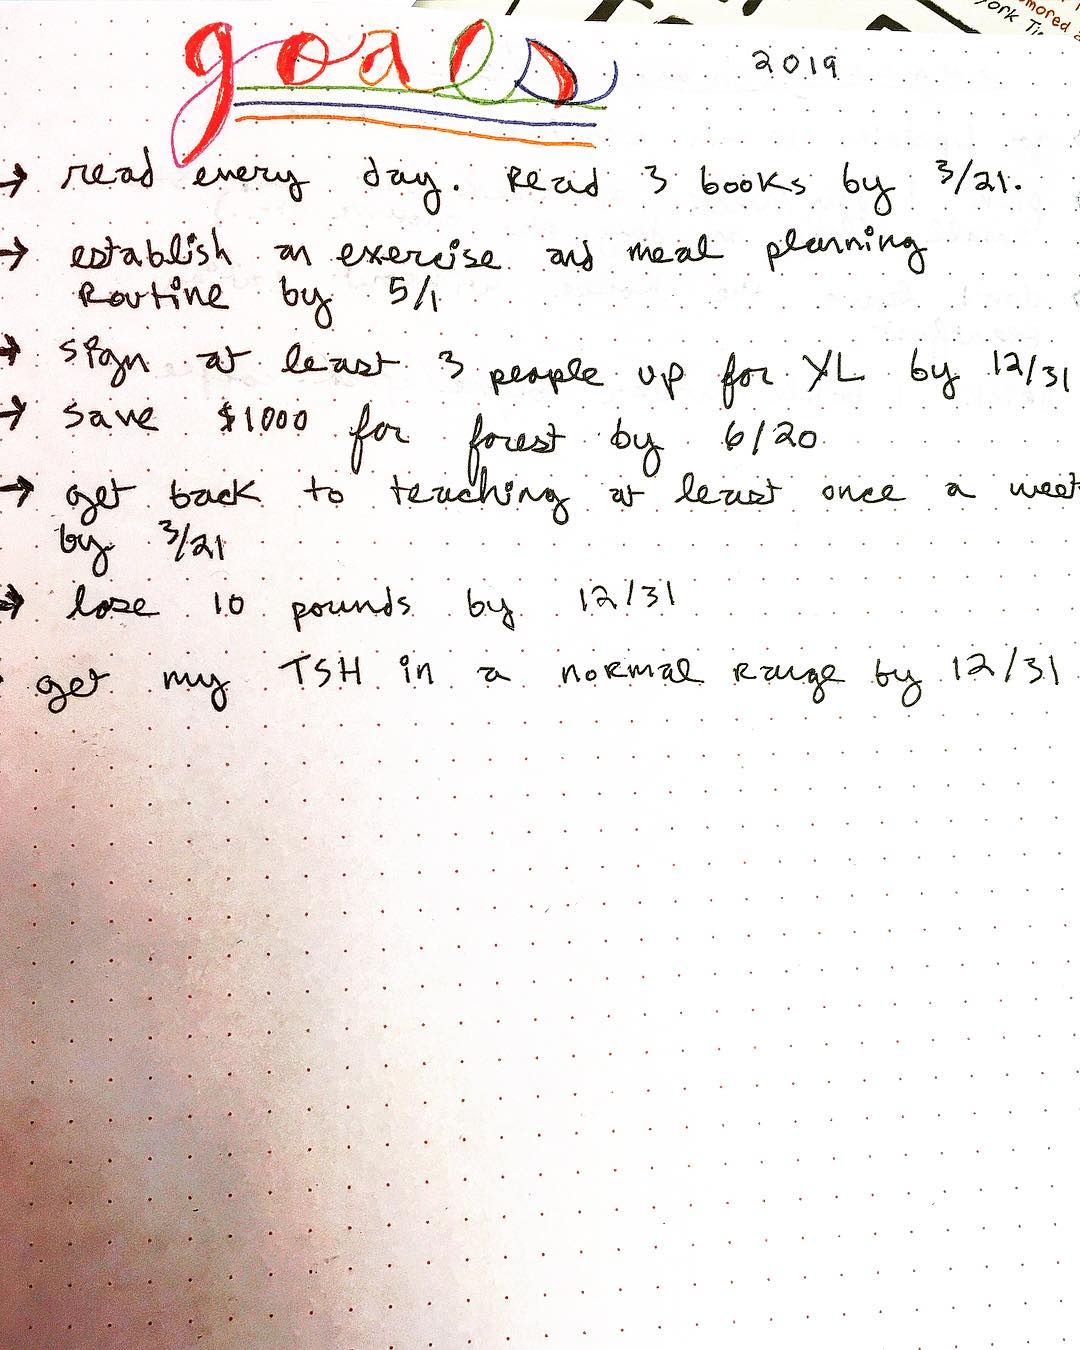 goals 2019
→ read every day. Read 3 books by 3/21.
→ establish an exercise and meal planning
Routine by 5/1
→ sign at least 3 people up for YL by 12/31
→ save $1000 for forest by 6/20
→ get back to teaching at least once a week
by 3/21
→ lose 10 pounds by 12/31
get my TSH in a normal range by 12/31